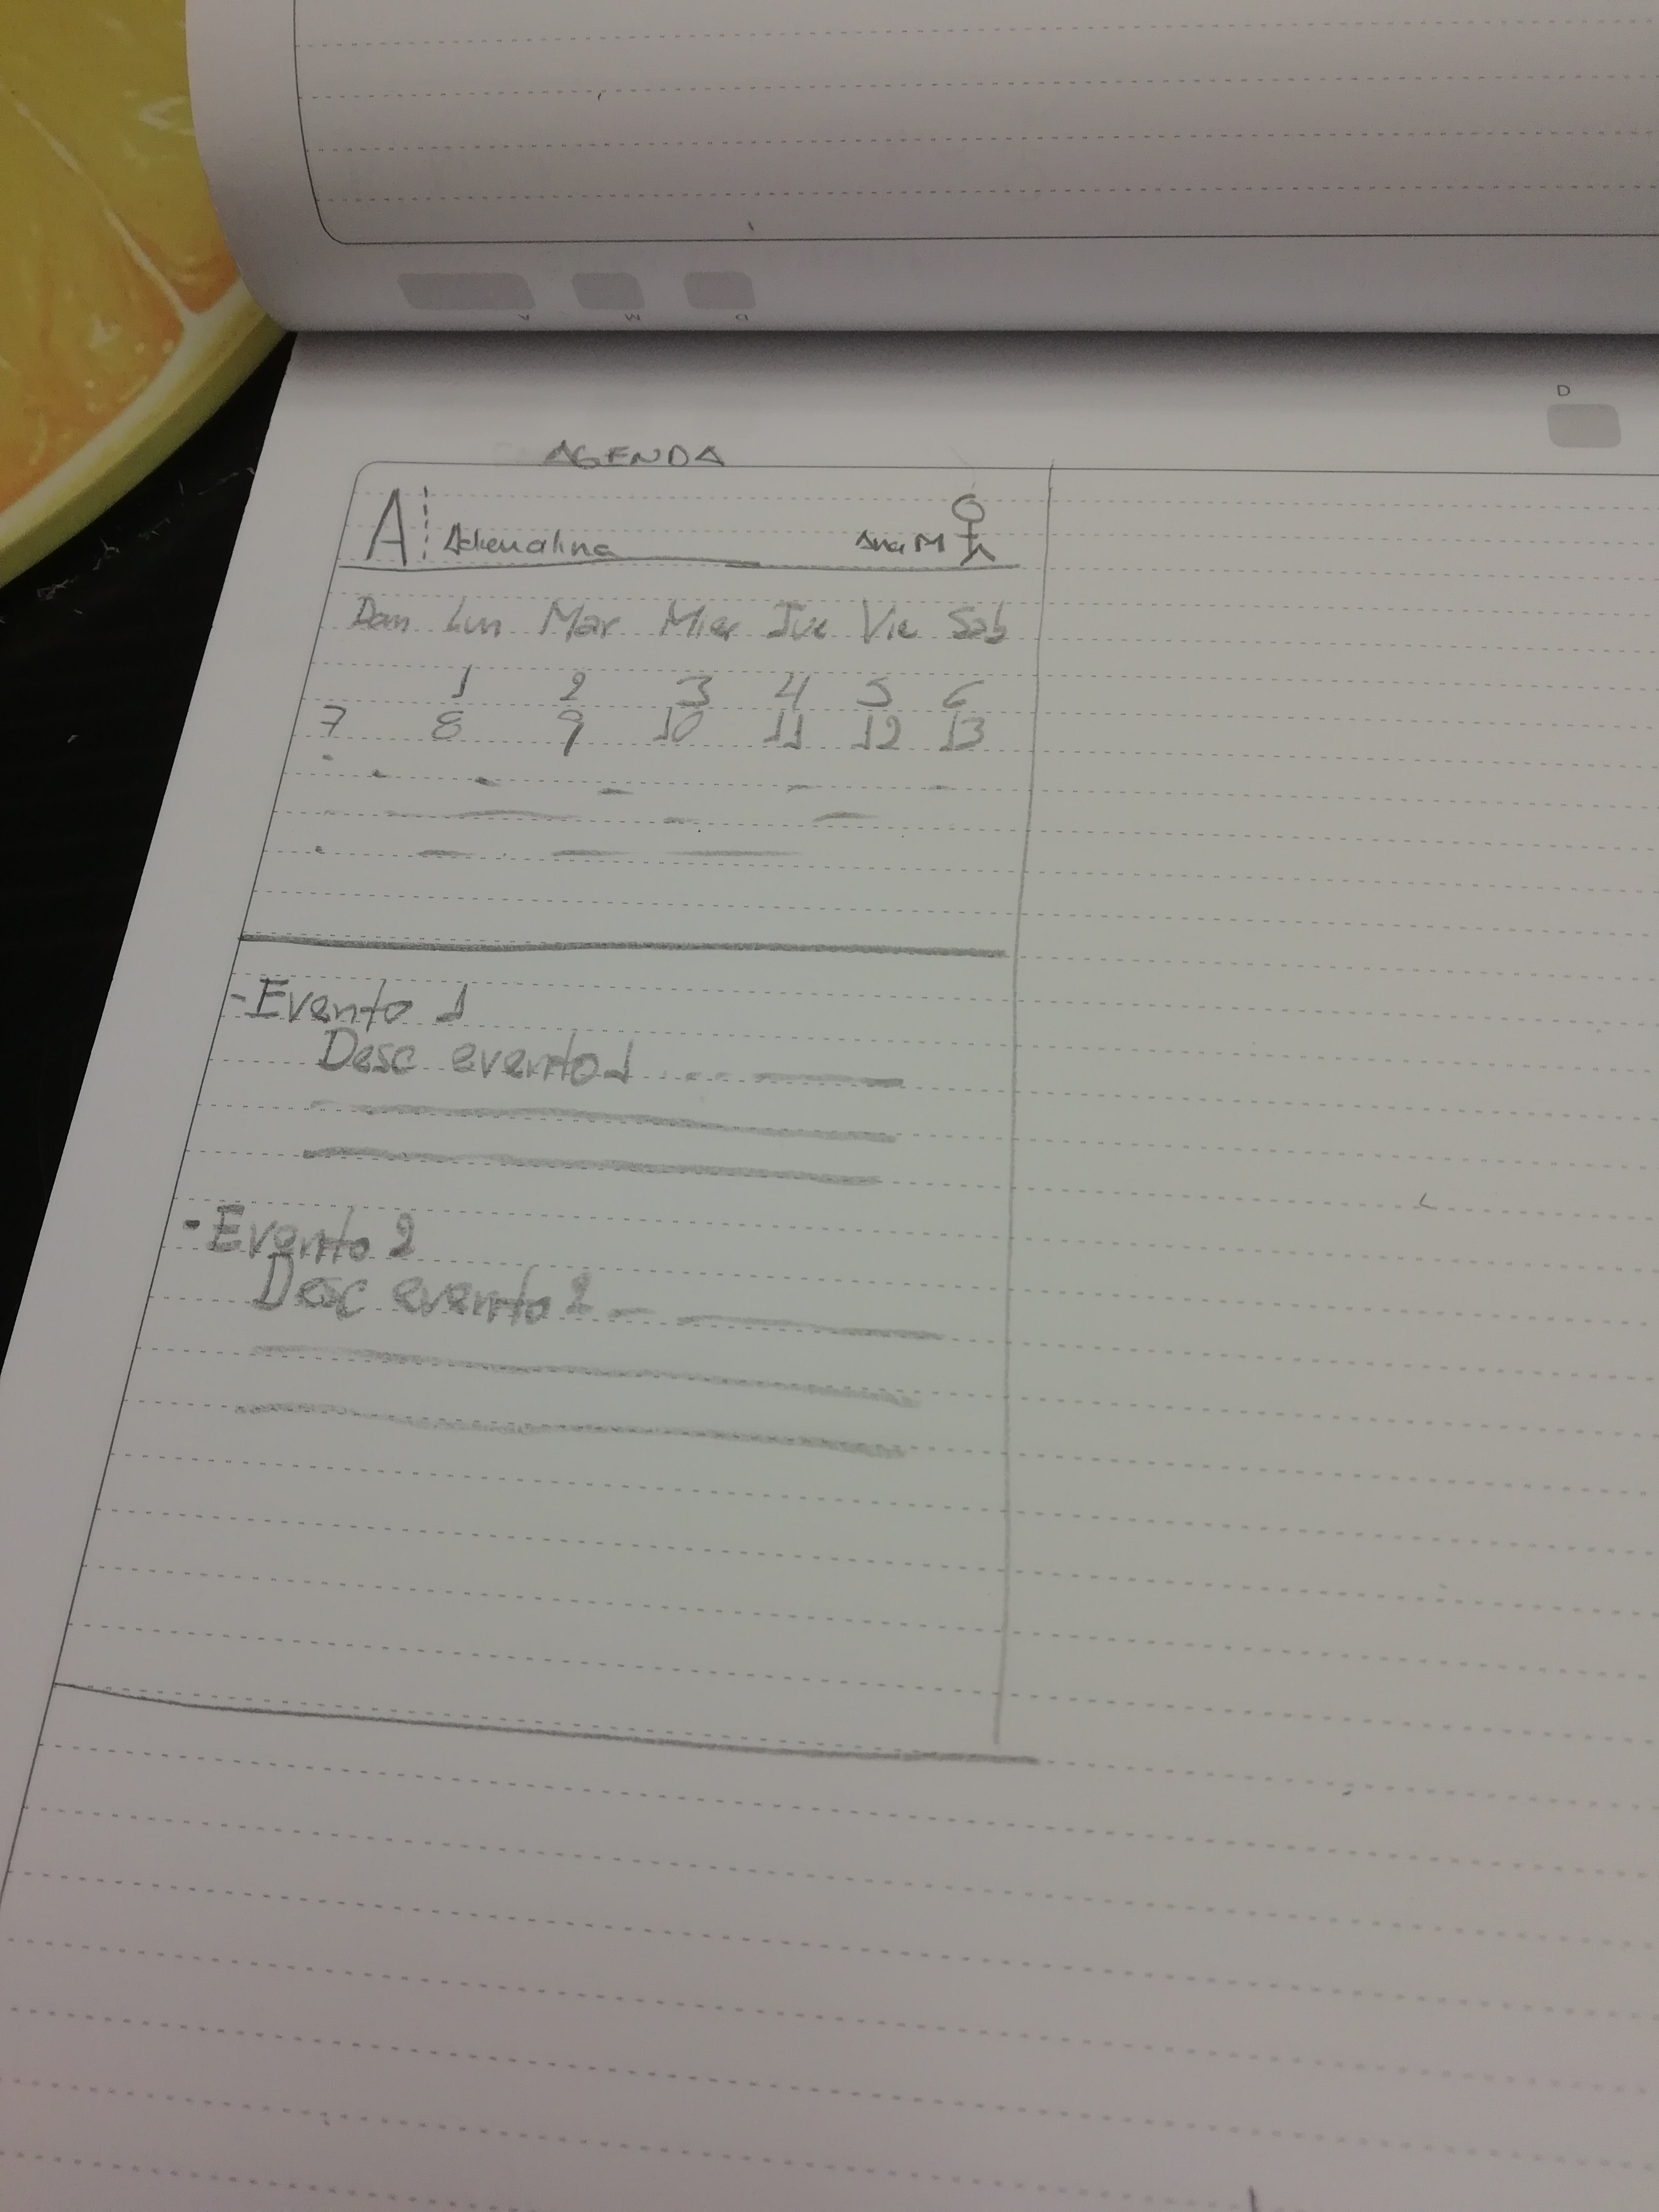 A M D
D
AGENDA
A Adrenalina Ana M
Dom Lun Mar Mier Jue Vie Sab
1 2 3 4 5 6
7 8 9 10 11 12 13
- Evento 1
Desc evento 1
- Evento 2
Desc evento 2